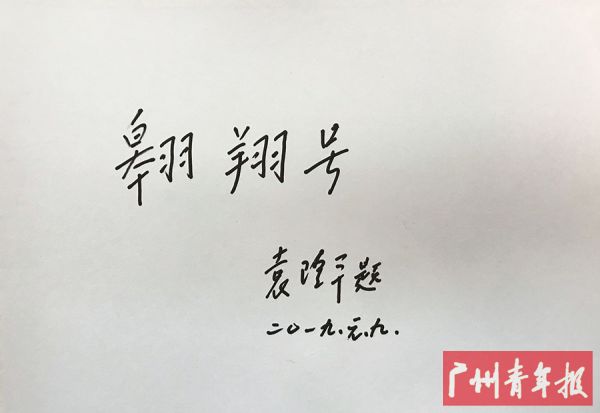 翱翔号
袁隆平题
二〇一九.元.九.
广州青年报